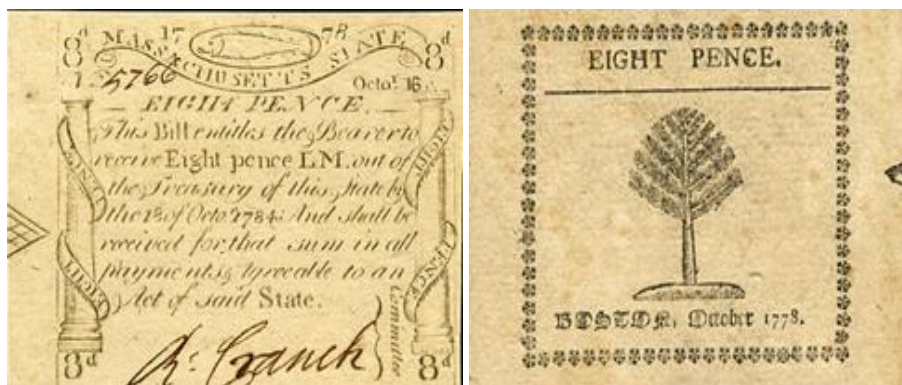 8d 17 78 8d
MASSACHUSETTS STATE
5766 Octor. 16
EIGHT PENCE
This Bill entitles the Bearer to
receive Eight pence L.M. out of
the Treasury of this State by
the 18 of Octo. 1784: And shall be
received for that sum in all
payments, Agreeable to an
Act of said State.
R: Cranch
Committee
8d 8d
PENCE
EIGHT
EIGHT
PENCE
EIGHT PENCE.
BOSTON, October 1778.